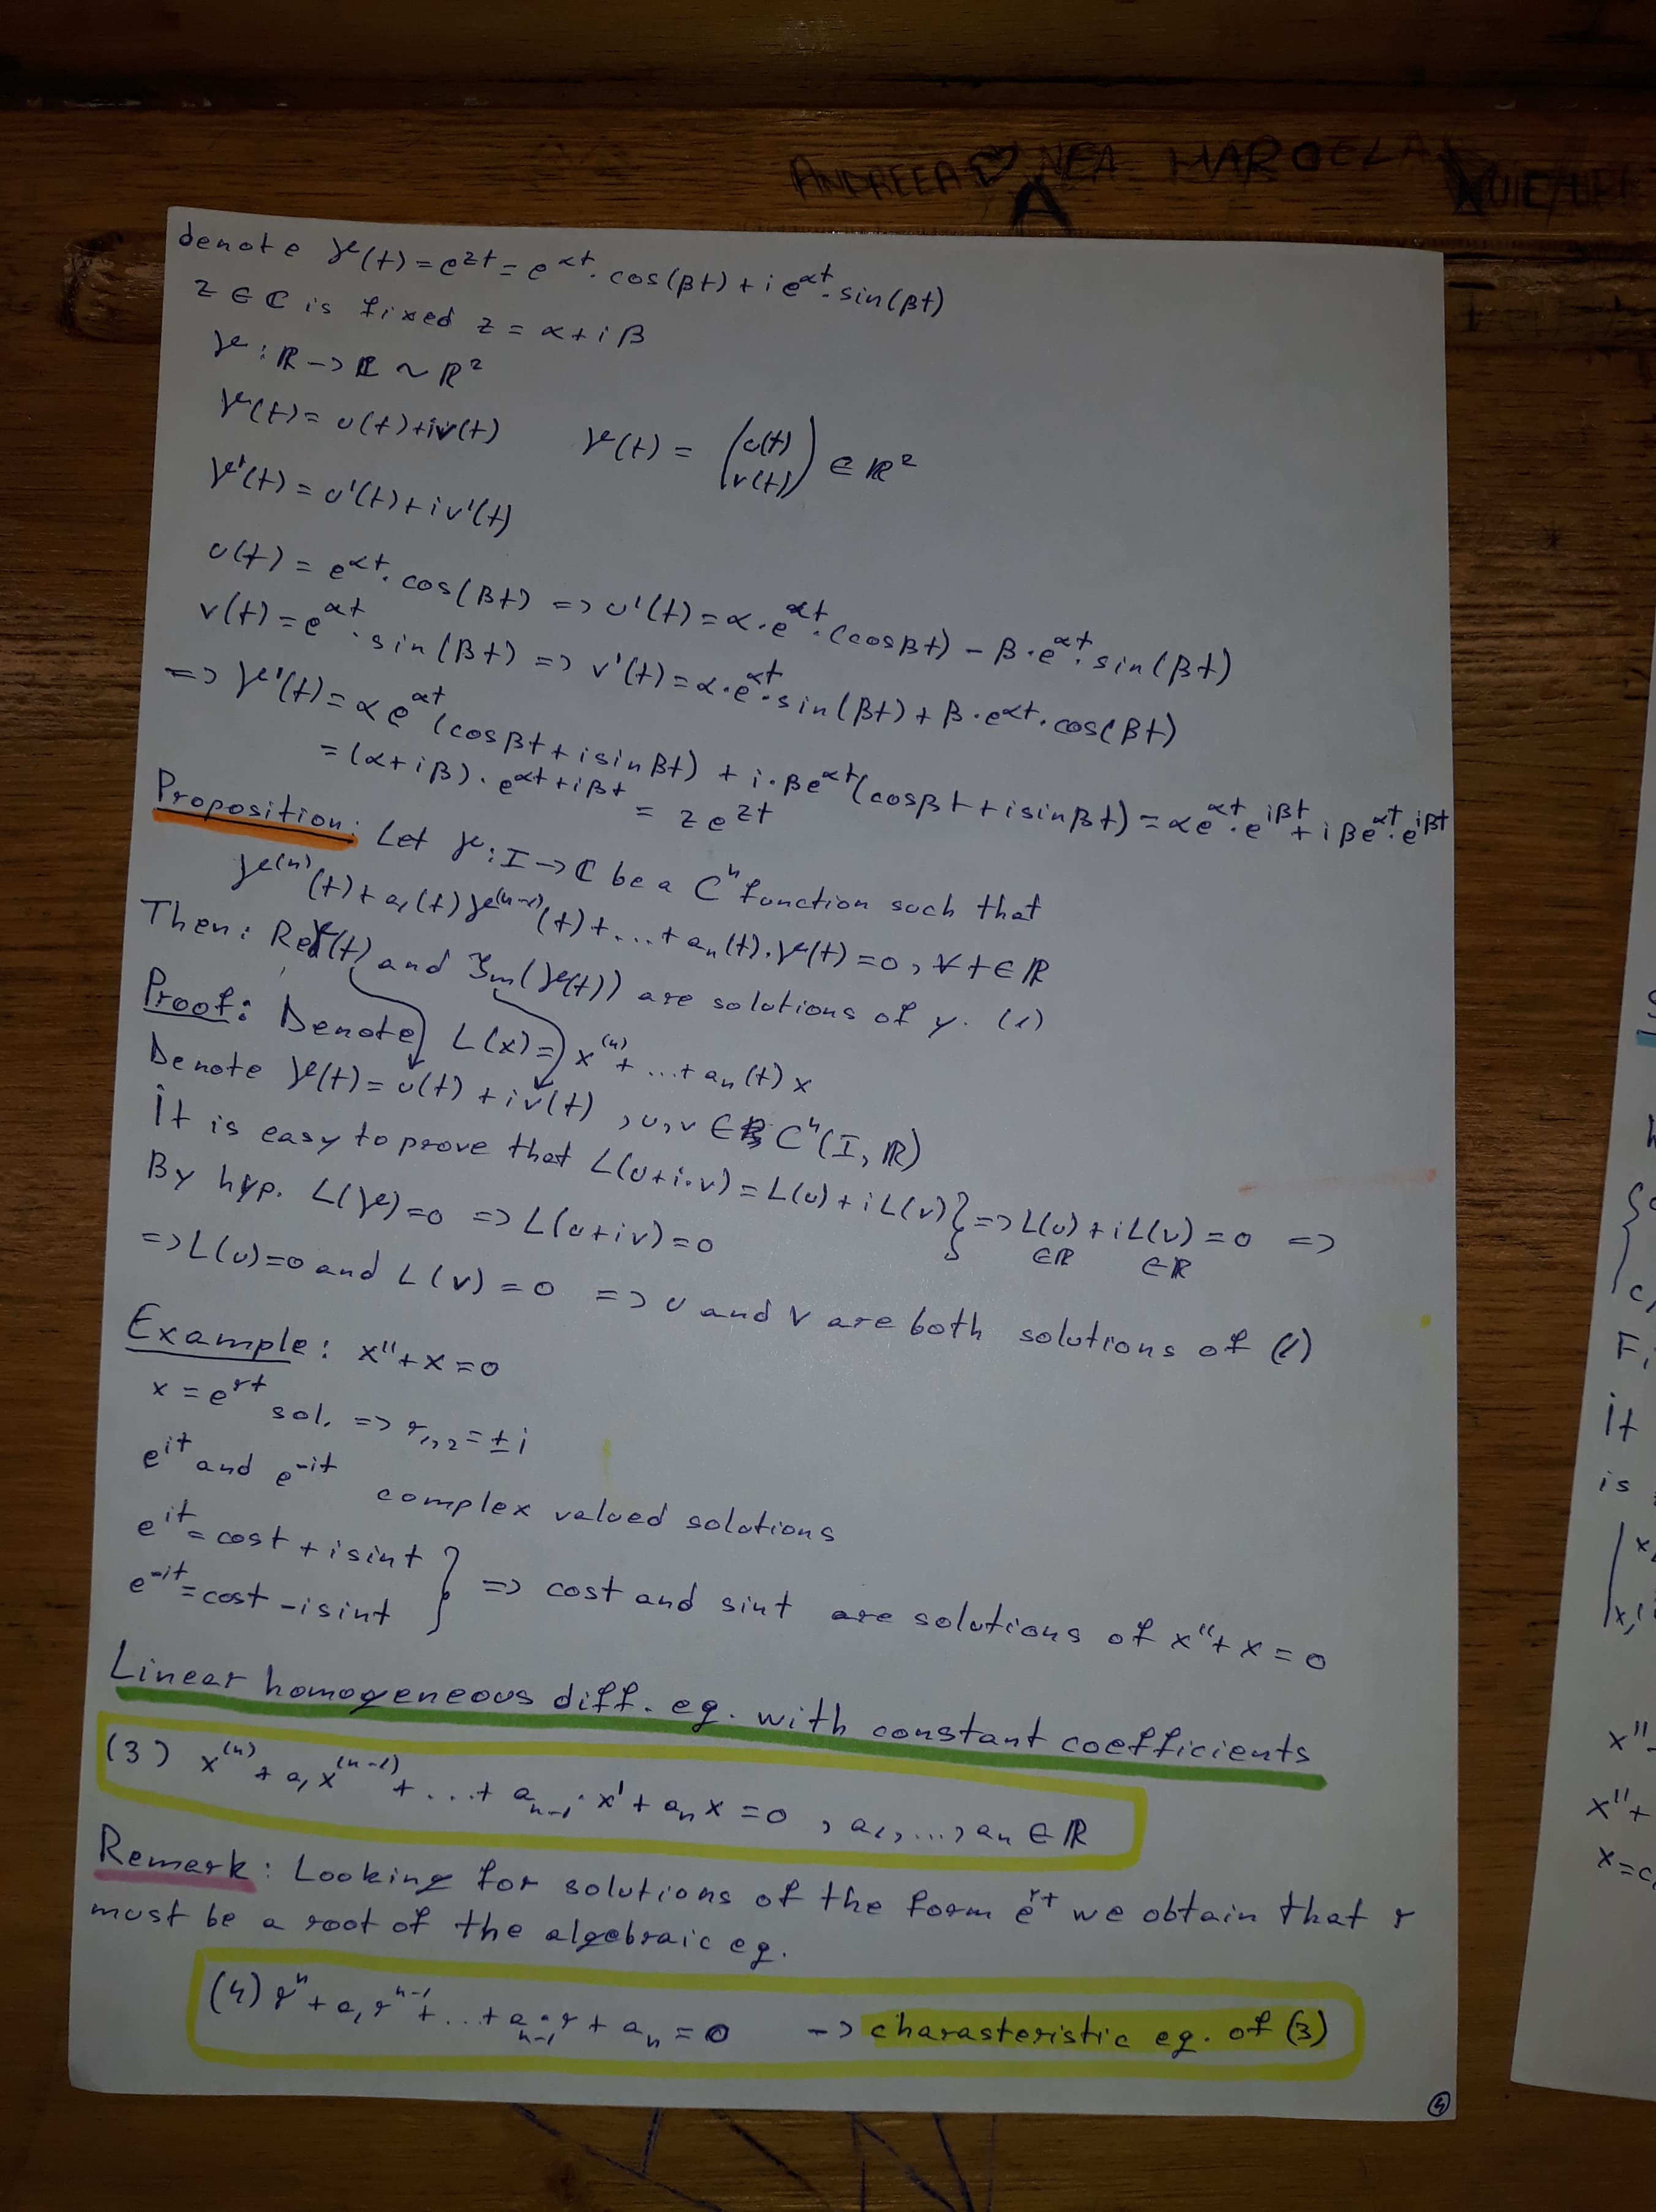 ANDREEA ♡ NEA MARCELA
A
denote γ(t) = e^{zt} = e^{αt}·cos(βt) + i e^{αt}·sin(βt)
z ∈ ℂ is fixed z = α + iβ
γ : ℝ -> ℂ ~ ℝ²
γ(t) = u(t) + iv(t) γ(t) = (u(t) v(t)) ∈ ℝ²
γ'(t) = u'(t) + iv'(t)
u(t) = e^{αt}·cos(βt) => u'(t) = α·e^{αt}·(cosβt) - β·e^{αt}·sin(βt)
v(t) = e^{αt}·sin(βt) => v'(t) = α·e^{αt}·sin(βt) + β·e^{αt}·cos(βt)
=> γ'(t) = α e^{αt}(cosβt + isinβt) + i·βe^{αt}(cosβt + isinβt) = αe^{αt}·e^{iβt} + iβe^{αt}·e^{iβt}
= (α+iβ)·e^{αt+iβt} = z e^{zt}
Proposition: Let γ : I -> ℂ be a Cⁿ function such that
γ^{(n)}(t) + a₁(t)γ^{(n-1)}(t) + ... + aₙ(t)·γ(t) = 0, ∀t ∈ ℝ
Then: Reγ(t) and Im(γ(t)) are solutions of y. (1)
Proof: Denote L(x) = x^{(n)} + ... + aₙ(t) x
Denote γ(t) = u(t) + iv(t), u,v ∈ Cⁿ(I, ℝ)
It is easy to prove that L(u+i·v) = L(u) + iL(v) } => L(u) + iL(v) = 0 =>
By hyp. L(γ) = 0 => L(u+iv) = 0 ∈ℝ ∈ℝ
=> L(u)=0 and L(v) = 0 => u and v are both solutions of (1)
Example: x'' + x = 0
x = e^{rt} sol. => r₁,₂ = ± i
e^{it} and e^{-it} complex valued solutions
e^{it} = cost + isint
e^{-it} = cost - isint } => cost and sint are solutions of x'' + x = 0
Linear homogeneous diff. eq. with constant coefficients
(3) x^{(n)} + a₁x^{(n-1)} + ... + a_{n-1}·x' + aₙx = 0, a₁,...,aₙ ∈ ℝ
Remark: Looking for solutions of the form e^{rt} we obtain that r
must be a root of the algebraic eq.
(4) rⁿ + a₁r^{n-1} + ... + a_{n-1}·r + aₙ = 0 -> charasteristic eq. of (3)
4
{
F
it
is
x''
x''+
x=c